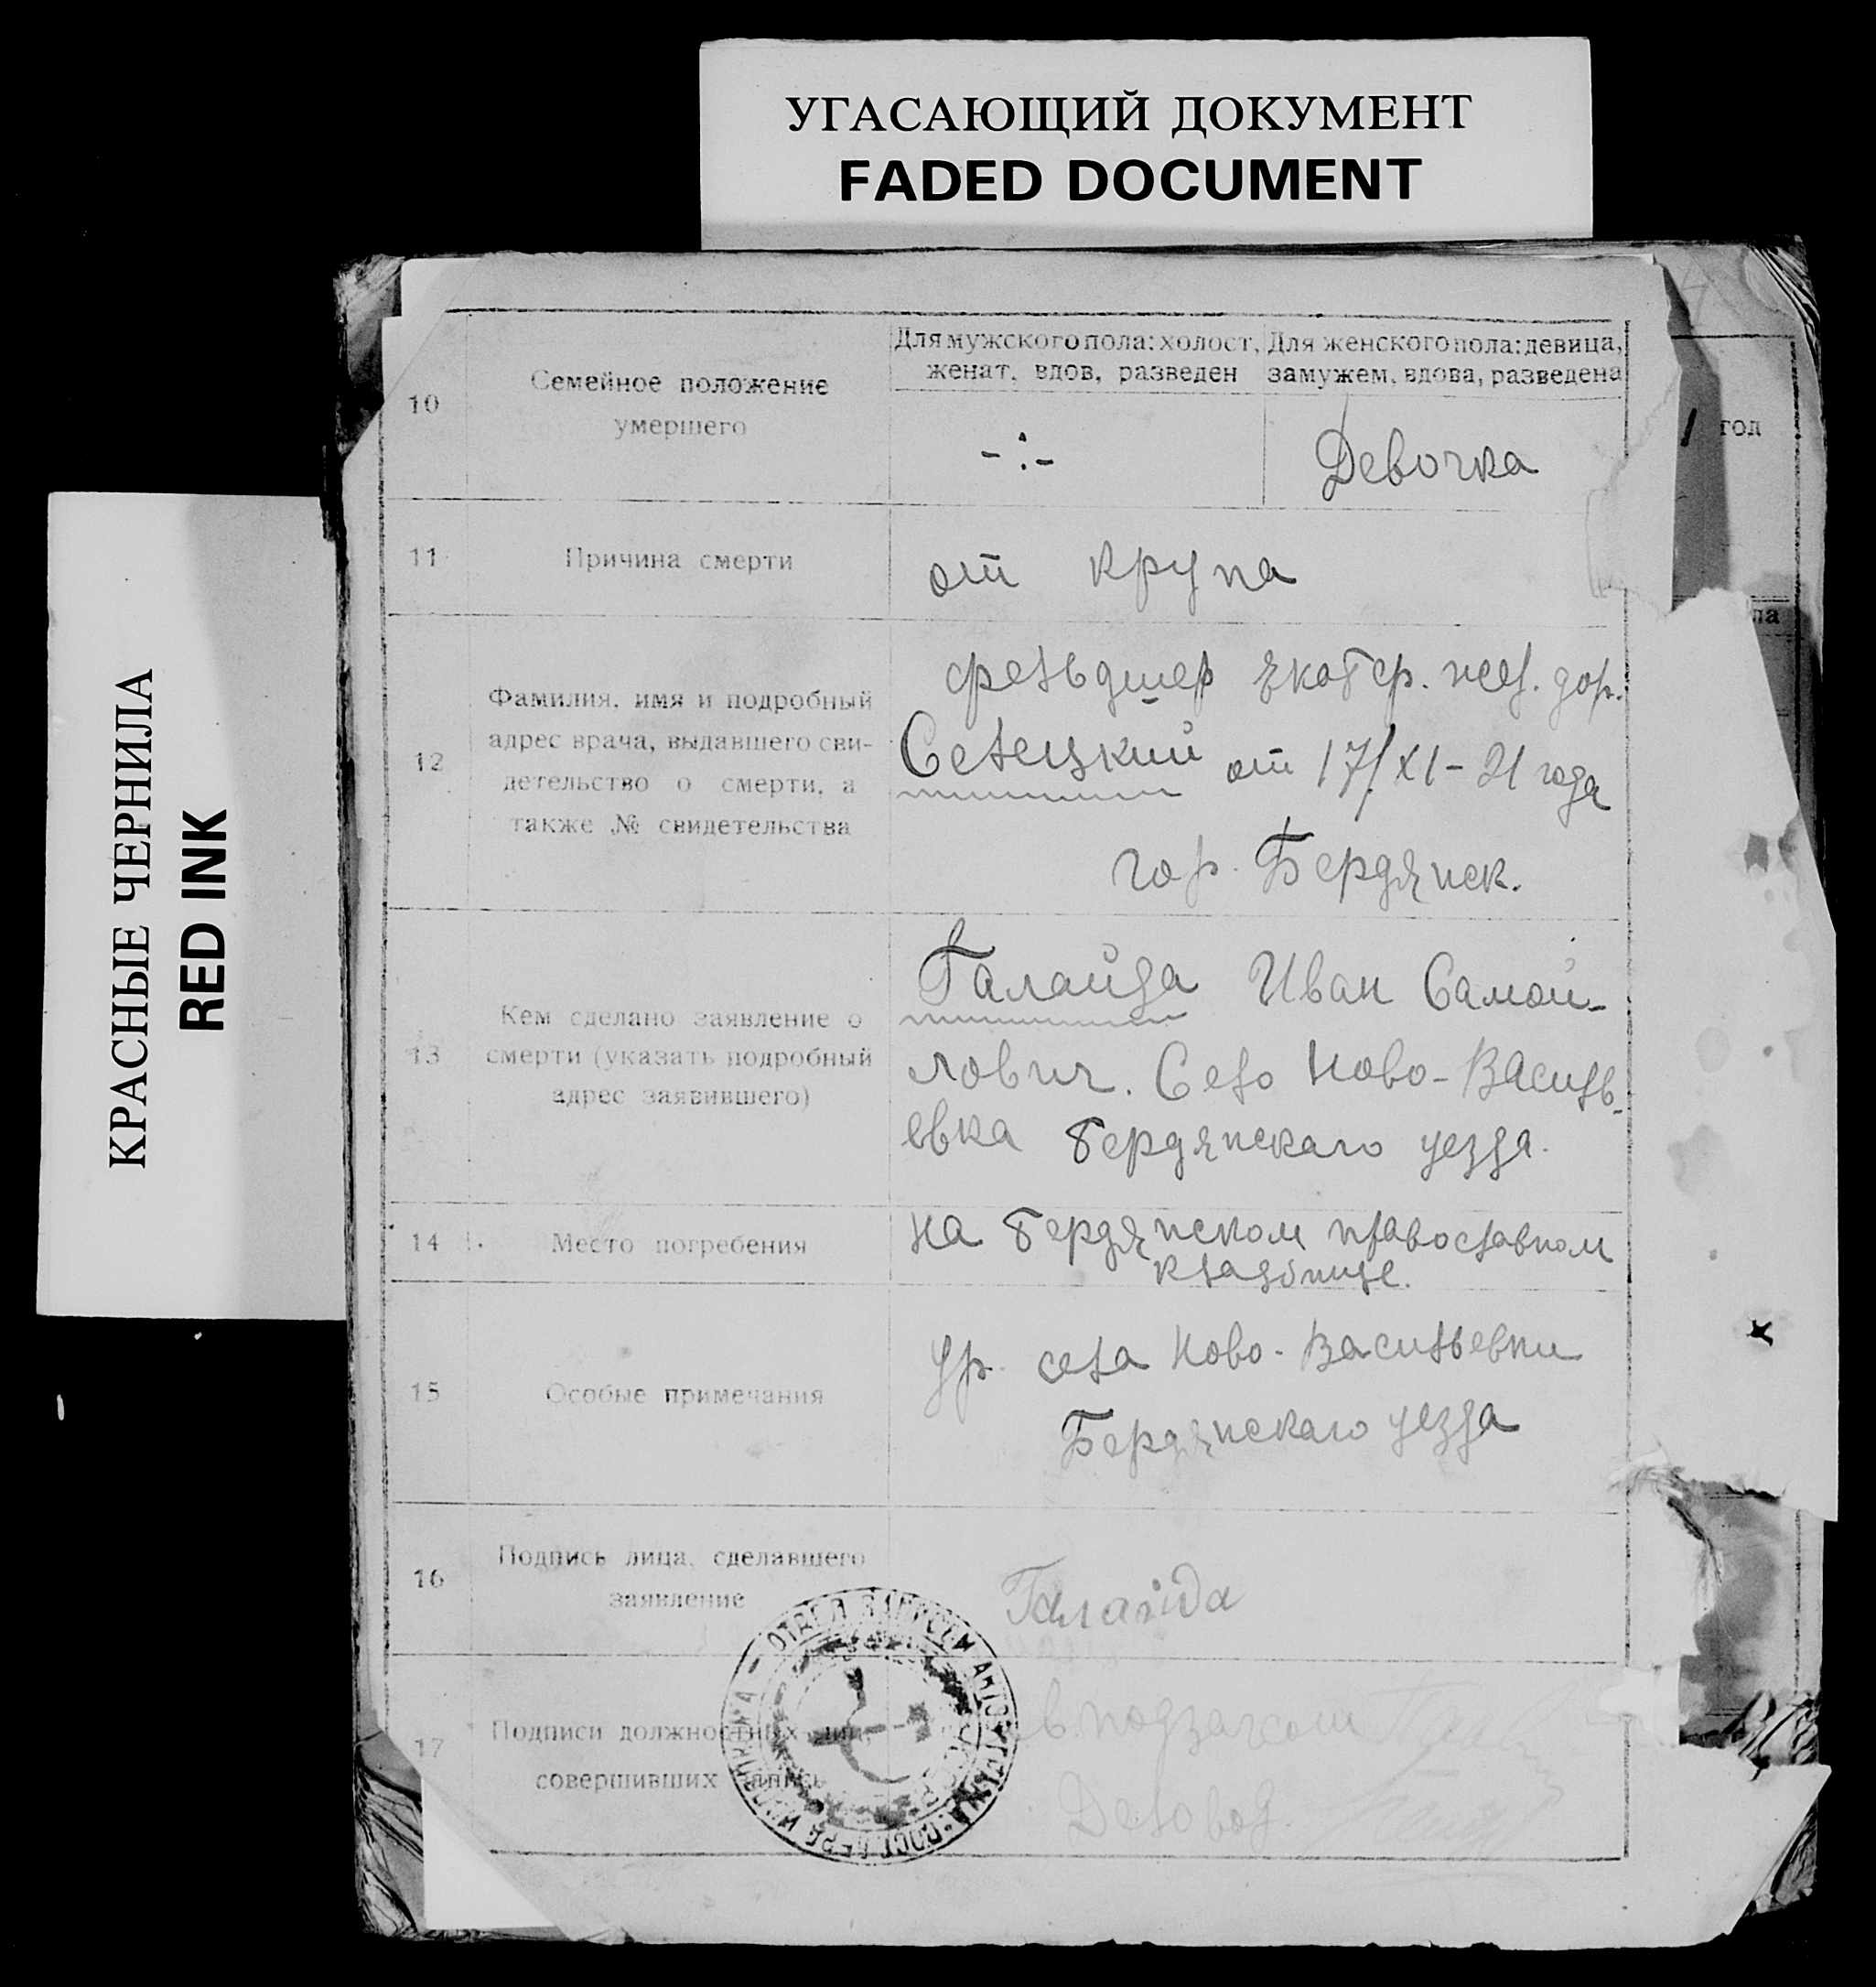 УГАСАЮЩИЙ ДОКУМЕНТ
FADED DOCUMENT
КРАСНЫЕ ЧЕРНИЛА
RED INK
10
Семейное положение
умершего
Для мужского пола: холост,
женат, вдов, разведен
Для женского пола: девица,
замужем, вдова, разведена
-:-
Девочка
год
11
Причина смерти
от крупа
12
Фамилия, имя и подробный
адрес врача, выдавшего сви-
детельство о смерти, а
также № свидетельства
фельдшер Екатер. жел. дор.
Селецкий от 17/XI-21 года
гор. Бердянск.
13
Кем сделано заявление о
смерти (указать подробный
адрес заявившего)
Галайда Иван Самой-
лович. Село Ново-Василь-
евка Бердянскаго уезда.
14
Место погребения
на Бердянском православном
кладбище.
15
Особые примечания
Ур. села Ново-Васильевки
Бердянскаго уезда
16
Подпись лица, сделавшего
заявление
Галайда
17
Подписи должностных лиц,
совершивших запись
в. подзагсом
Деловод.
ОТДЕЛ ЗАПИСЕЙ АКТОВ